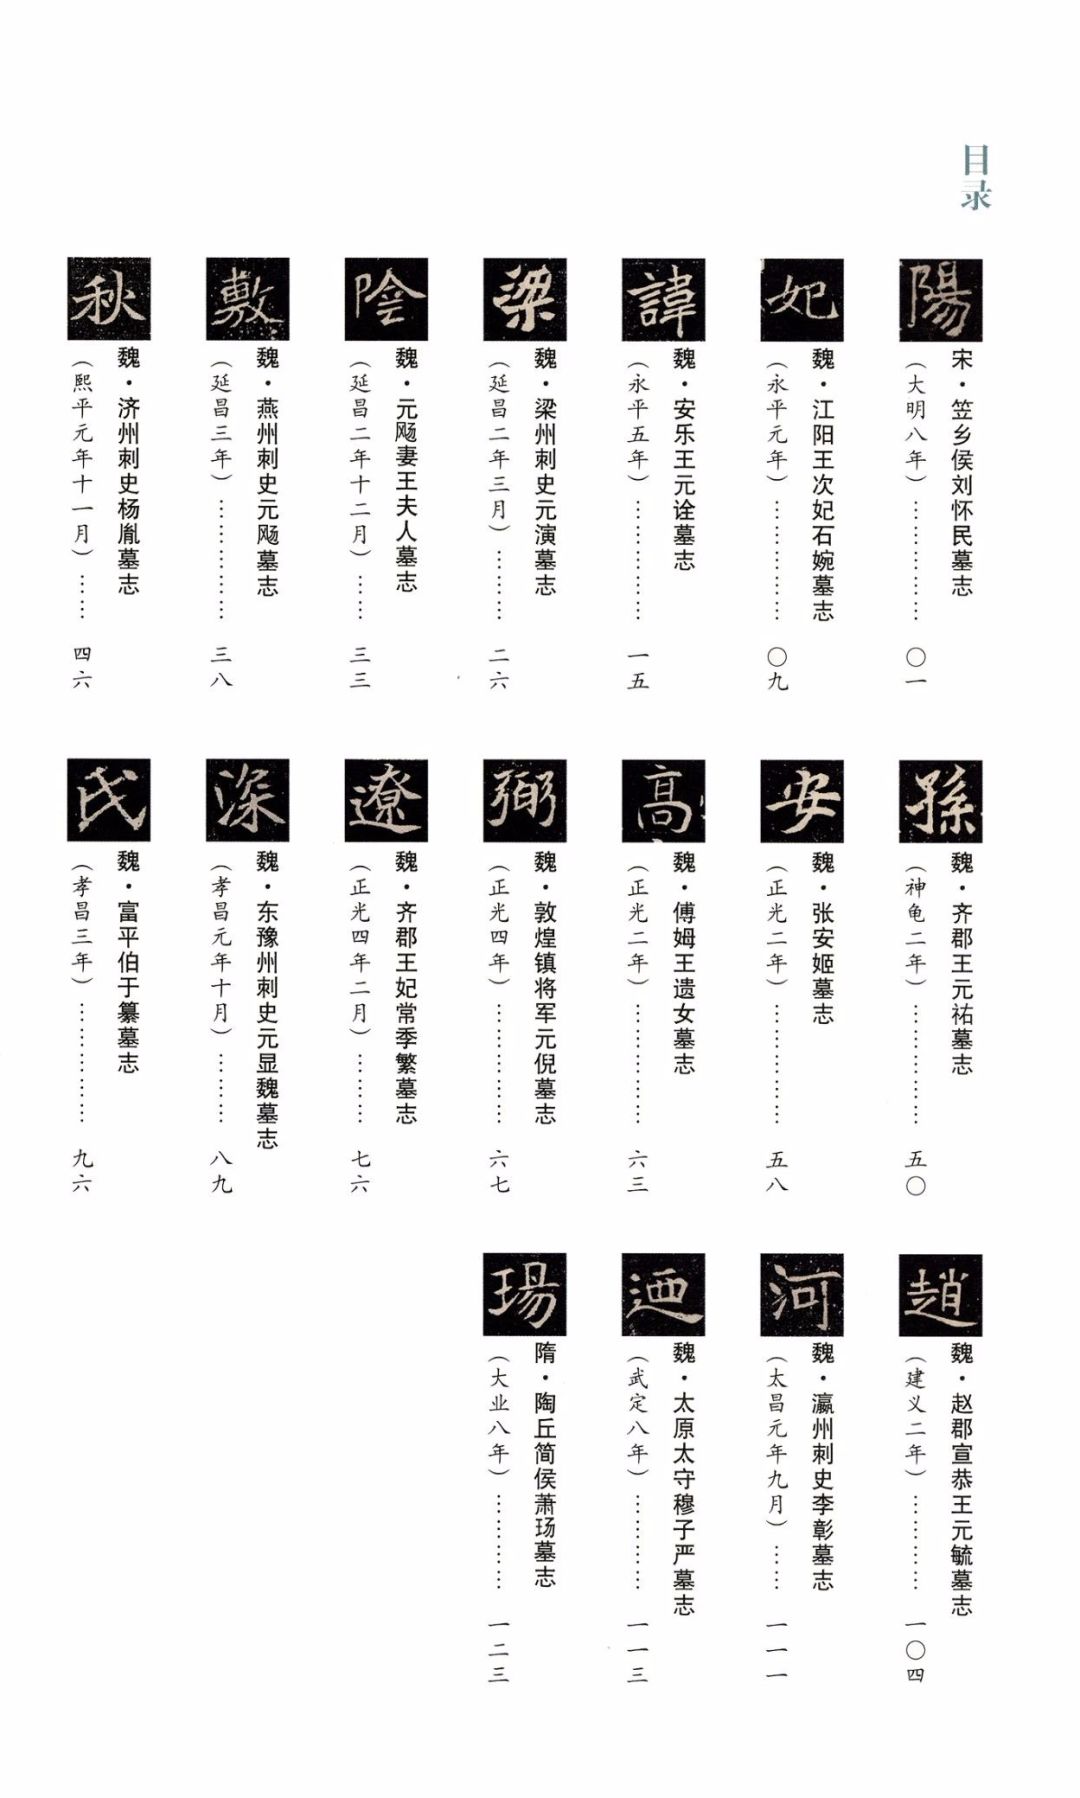 目录
陽
宋·笠乡侯刘怀民墓志
（大明八年）…………… 〇一
妃
魏·江阳王次妃石婉墓志
（永平元年）…………… 〇九
諱
魏·安乐王元诠墓志
（永平五年）…………… 一五
梁
魏·梁州刺史元演墓志
（延昌二年三月）……… 二六
陰
魏·元飏妻王夫人墓志
（延昌二年十二月）…… 三三
敷
魏·燕州刺史元飏墓志
（延昌三年）…………… 三八
秋
魏·济州刺史杨胤墓志
（熙平元年十一月）…… 四六
孫
魏·齐郡王元祐墓志
（神龟二年）…………… 五〇
安
魏·张安姬墓志
（正光二年）…………… 五八
高
魏·傅姆王遗女墓志
（正光二年）…………… 六三
弼
魏·敦煌镇将军元倪墓志
（正光四年）…………… 六七
遼
魏·齐郡王妃常季繁墓志
（正光四年二月）……… 七六
深
魏·东豫州刺史元显魏墓志
（孝昌元年十月）……… 八九
氏
魏·富平伯于纂墓志
（孝昌三年）…………… 九六
趙
魏·赵郡宣恭王元毓墓志
（建义二年）………… 一〇四
河
魏·瀛州刺史李彰墓志
（太昌元年九月）…… 一一一
迺
魏·太原太守穆子严墓志
（武定八年）………… 一一三
瑒
隋·陶丘简侯萧玚墓志
（大业八年）………… 一二三